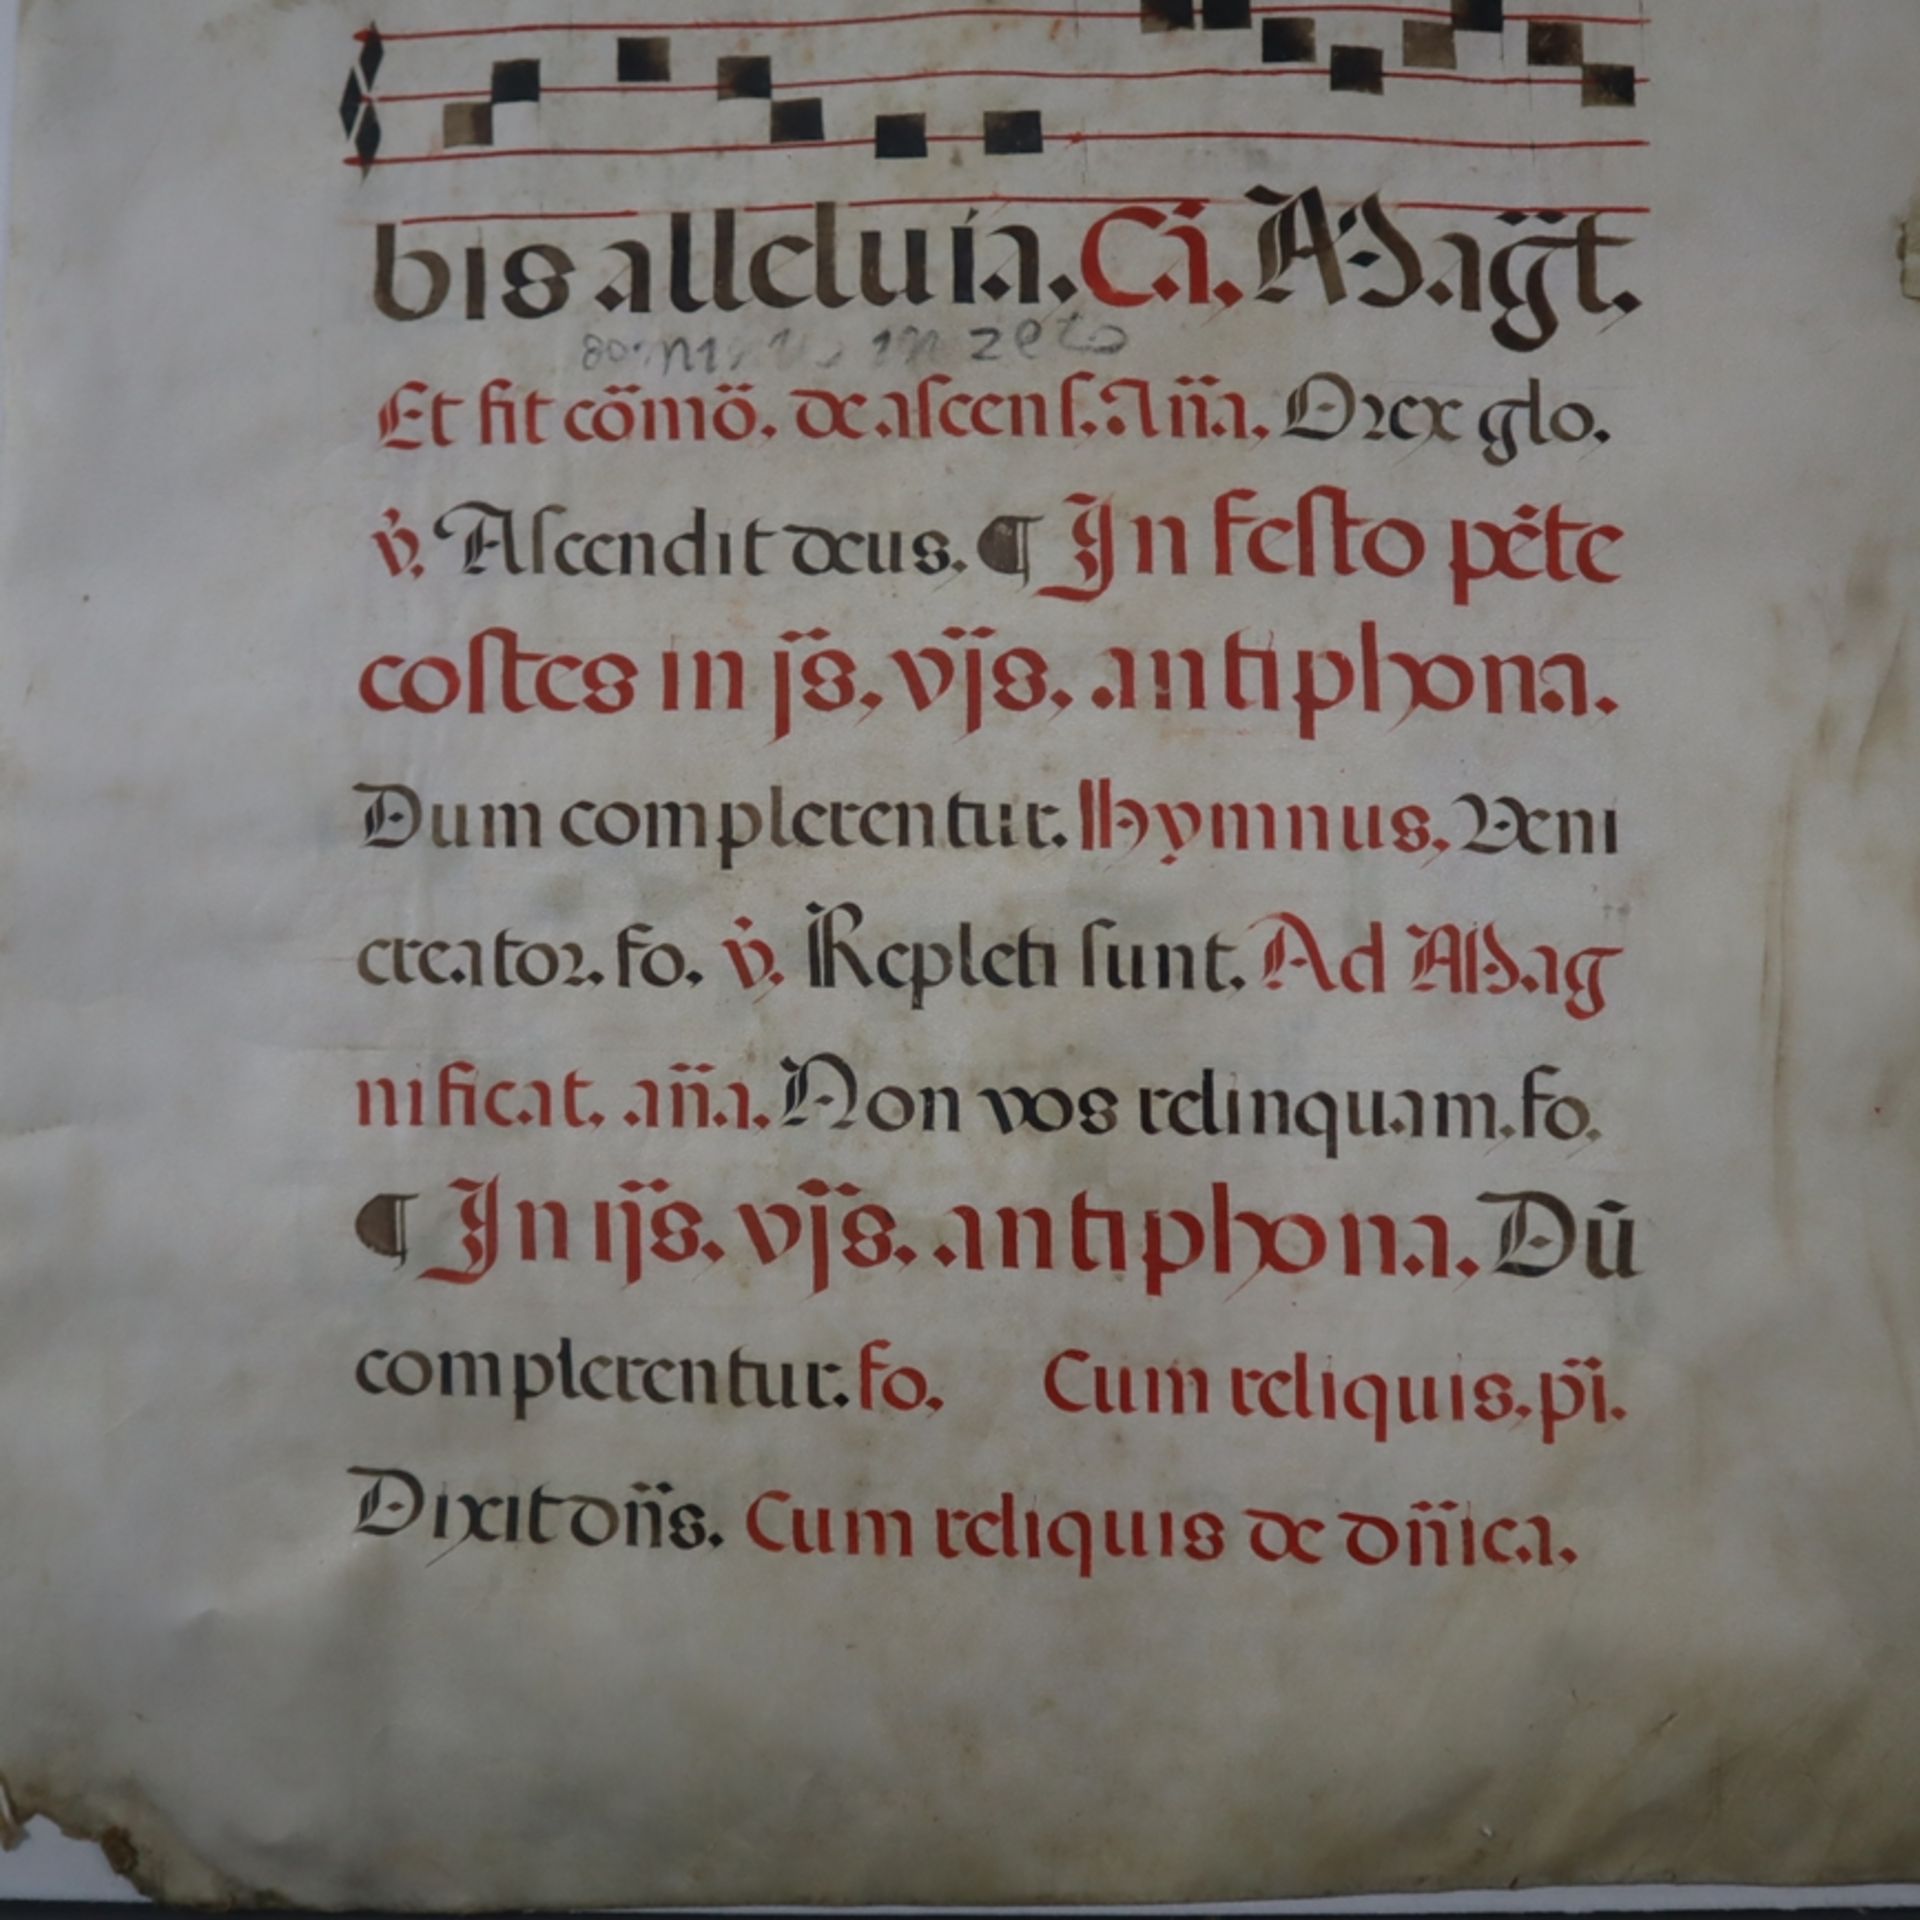 bis alleluia. Cá. Magt̃.
Et fit cõmõ. de ascens. Añа. O rex glo.
v̇. Ascendit deus. ¶ In festo pẽte
costes in js̃. vjs̃. antiphona.
Dum complerentur. hymnus. Veni
creator. fo. v̇. Repleti sunt. Ad Mag
nificat. añа. Non vos relinquam. fo.
¶ In ijs̃. vjs̃. antiphona. Dũ
complerentur. fo. Cum reliquis. pĩ.
Dixit dñs. Cum reliquis de dñica.